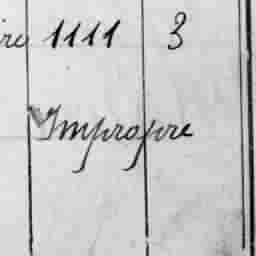 re 1111 3
Impropre